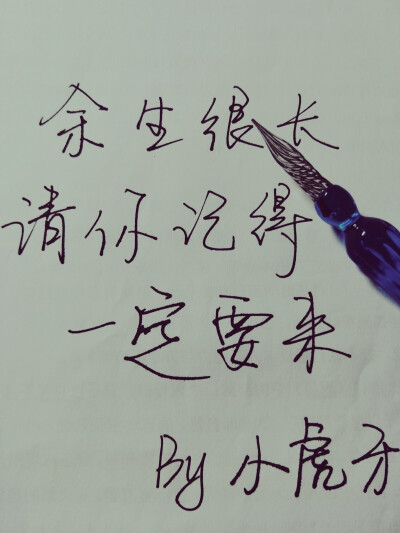 余生很长
请你记得
一定要来
By 小虎牙